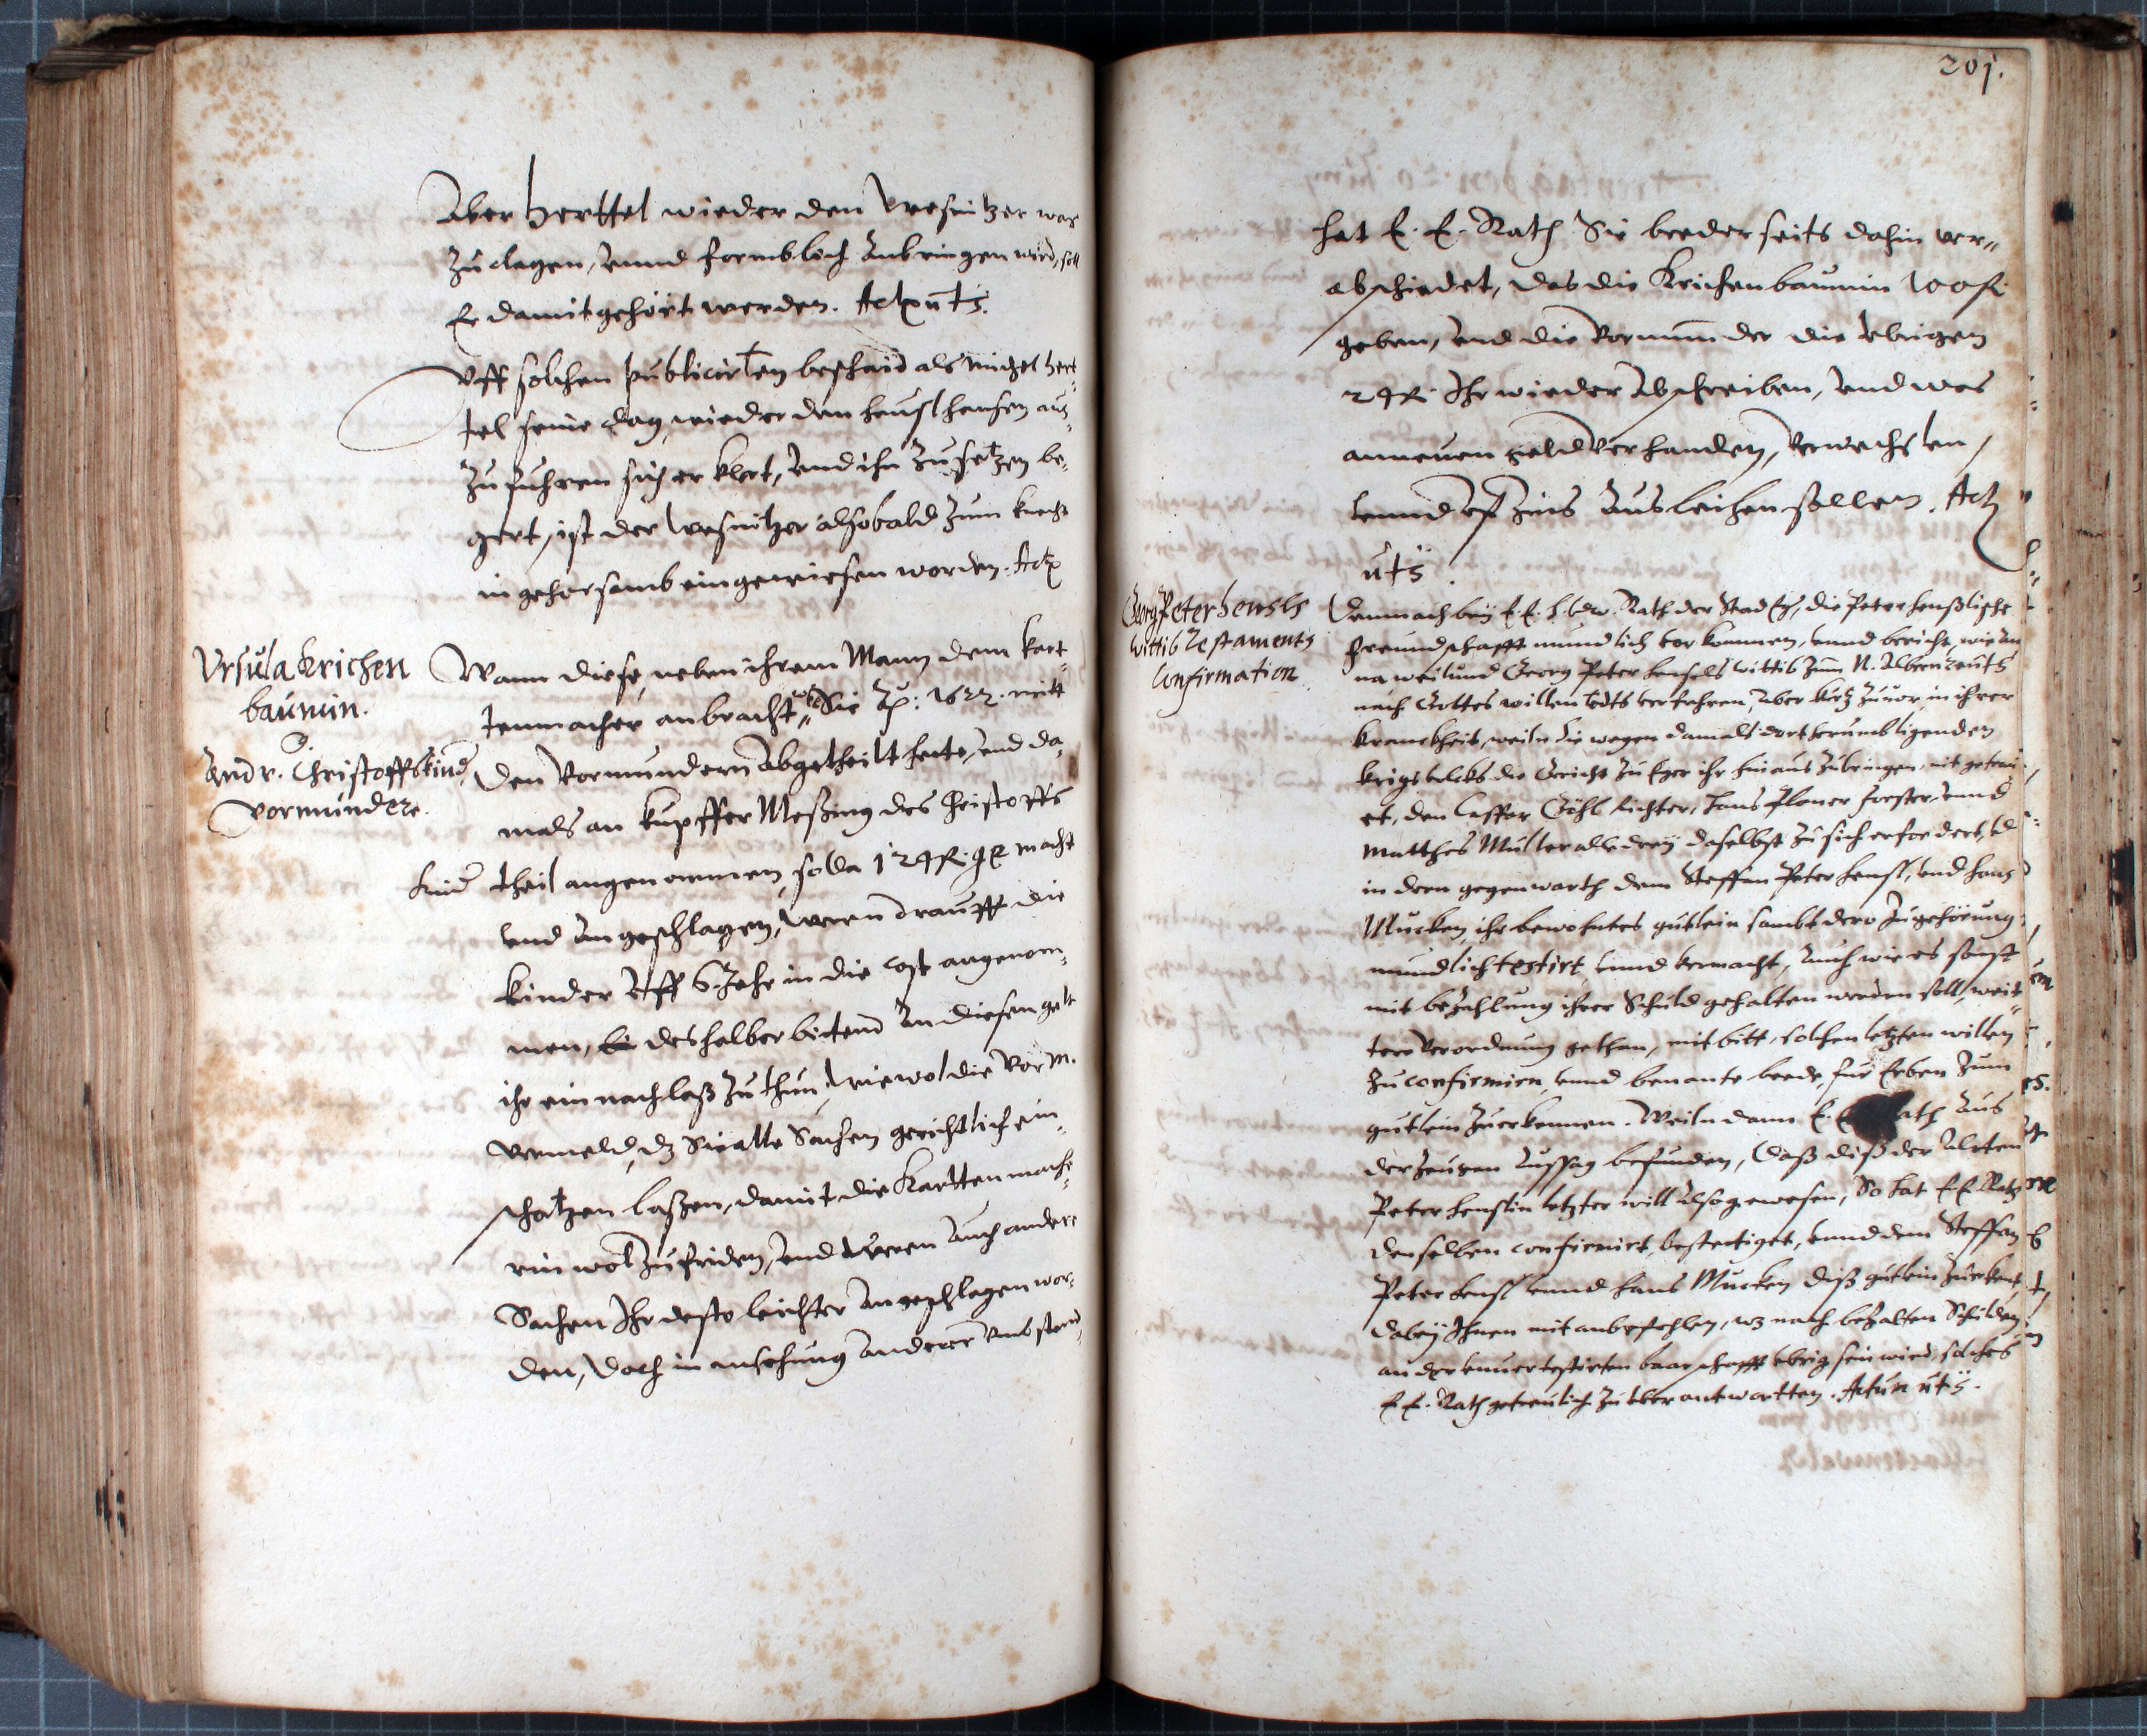 Aber Herttel wieder den Wesnitzer was
zu clagen, vnnd formblich anbringen wird, soll
Er damit gehört werden. Act. uts.
Vff solchen publicirten beschaid als Michel Hert-
tel seine clag, wieder den
zu fuhren sich erklert, vnd ihn zu setzen be-
gert, ist der Wesnitzer alsobald zum
in gehorsamb eingewiesen worden. Act.
Vrsula Krichen
baumin.
Andr. Christoffs kind
Vormundere.
Wann diese, neben ihrem Mann dem Kart-
tenmacher anbracht, Sie 1622. mitt
den Vormundern abgetheilt hette, vnd da-
mals an Kupffer Meßing des Christoffs
Kind theil angenommen, so da 124 fl. macht
vnd angeschlagen, wern drauff die
Kinder vff 6. Jahr in die Cost angenom-
men, deshalber bittend an diesem gelt
ihr ein nachlaß zu thun, wiewol die Vorm.
vermeld, dz Sie alle Sachen gerichtlich ein-
schatzen laßen, damit die Karttenmach-
erin wol zufriden, vnd weren auch andere
Sachen Ihr desto leichter angeschlagen wor-
den, Doch in ansehung anderer vmbstend
201.
hat E. E. Rath Sie beederseits dahin ver-
abschiedet, das die Krichenbaumin 100 fl.
geben, vnd die Vormunder die vbrigen
24 fl. Ihr wieder abschreiben, vnd was
an neuen geld verhanden, verwechslen,
vnnd vf Zins ausleihen sollen. Act.
uts.
Georg Peter Hensls
Wittib Testaments
Confirmation
Demnach bey E. E. H. Rath der Stad Eg. die Peter Henßlische
freundschafft mundlich vorkommen, vnnd bericht, wie
weilund Georg Peter Hensels Wittib zum N. Albenreuts
nach Gottes willen tods verfahren, aber kurtz zuuor, in ihrer
kranckheit, weiln Sie wegen damals dort herumbligenden
krigsvolcks die Gericht zu Eger ihr hinaus zubringen, nit getrau-
et, den Caspar Göhl Richter, Hans Ploner forster, vnnd
Matthes Muller alle drey daselbst zu sich erfordert, vnd
in dern gegenwarth dem Steffan Peter Hensl, vnd Hans
Mucken, ihr bewohntes gutlein sambt dero zugehörung
mundlich testirt vnnd vermacht, auch wie es sonst
mit bezahlung ihrer Schuld gehalten werden soll, weit-
tere Verordnung gethan, mit bitt, solchen letzten willen
zu confirmirn, vnnd benante beede, fur Erben zum
gutlein zuerkennen. Weiln dann E. E. Rath aus
der zeugen aussag befunden, Daß diß der alten
Peter Henslin letzter will also gewesen, So hat E. E. Rath
denselben confirmirt, bestettiget, vnnd dem Steffan
Peter Hensl vnnd Hans Mucken diß gutlein zuerkent,
dabey Ihnen mit anbefohlen, wz nach bezalten Schulden
an der vnuertestirten baarschafft vbrig sein wird, solches
E. E. Rath getreulich zu vberantwortten. Actum uts.